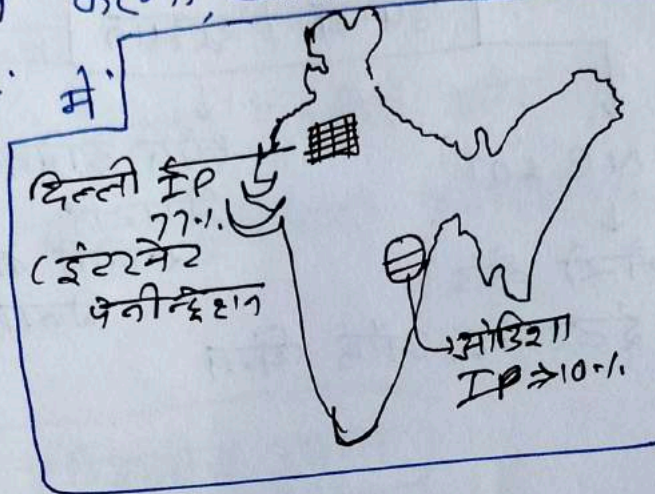 में
दिल्ली IP
77%
(इंटरनेट
पेनीट्रेशन
ओडिशा
IP ⇒ 10%